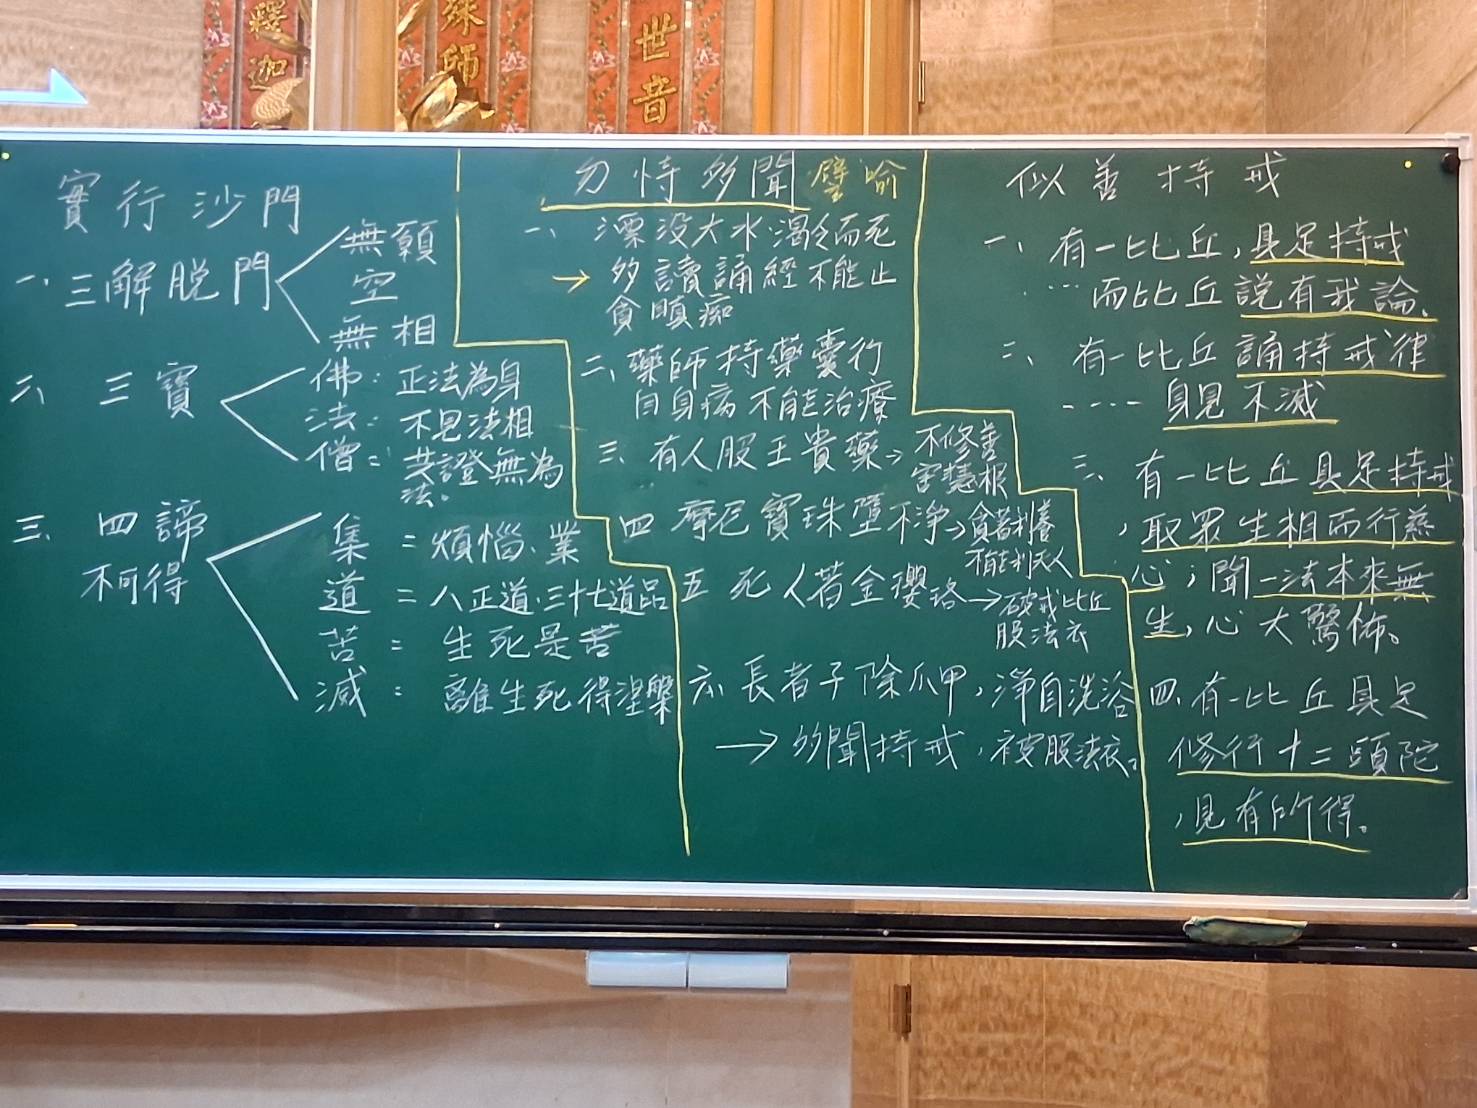 釋迦
師
世音
實行沙門
一、三解脫門
無願
空
無相
二、三寶
佛：正法為身
法：不見法相
僧：共證無為法。
三、四諦
不可得
集＝煩惱、業
道＝八正道、三十七道品
苦＝生死是苦
滅：離生死得涅槃
勿恃多聞 譬喻
一、漂沒大水渴乏而死
→多讀誦經不能止
貪瞋痴
二、藥師持藥囊行
自身病不能治療
三、有人服王貴藥→不修善
害慧根
四 摩尼寶珠墮不淨→貪著利養
不能利天人
五 死人著金瓔珞→破戒比丘
服法衣
六、長者子除爪甲，淨自洗浴
→多聞持戒，被服法衣。
似善持戒
一、有一比丘，具足持戒
…而比丘說有我論、
二、有一比丘誦持戒律
----身見不滅
三、有一比丘具足持戒
，取眾生相而行慈
心；聞一法本來無
生，心大驚怖。
四、有一比丘具足
修行十二頭陀
，見有所得。